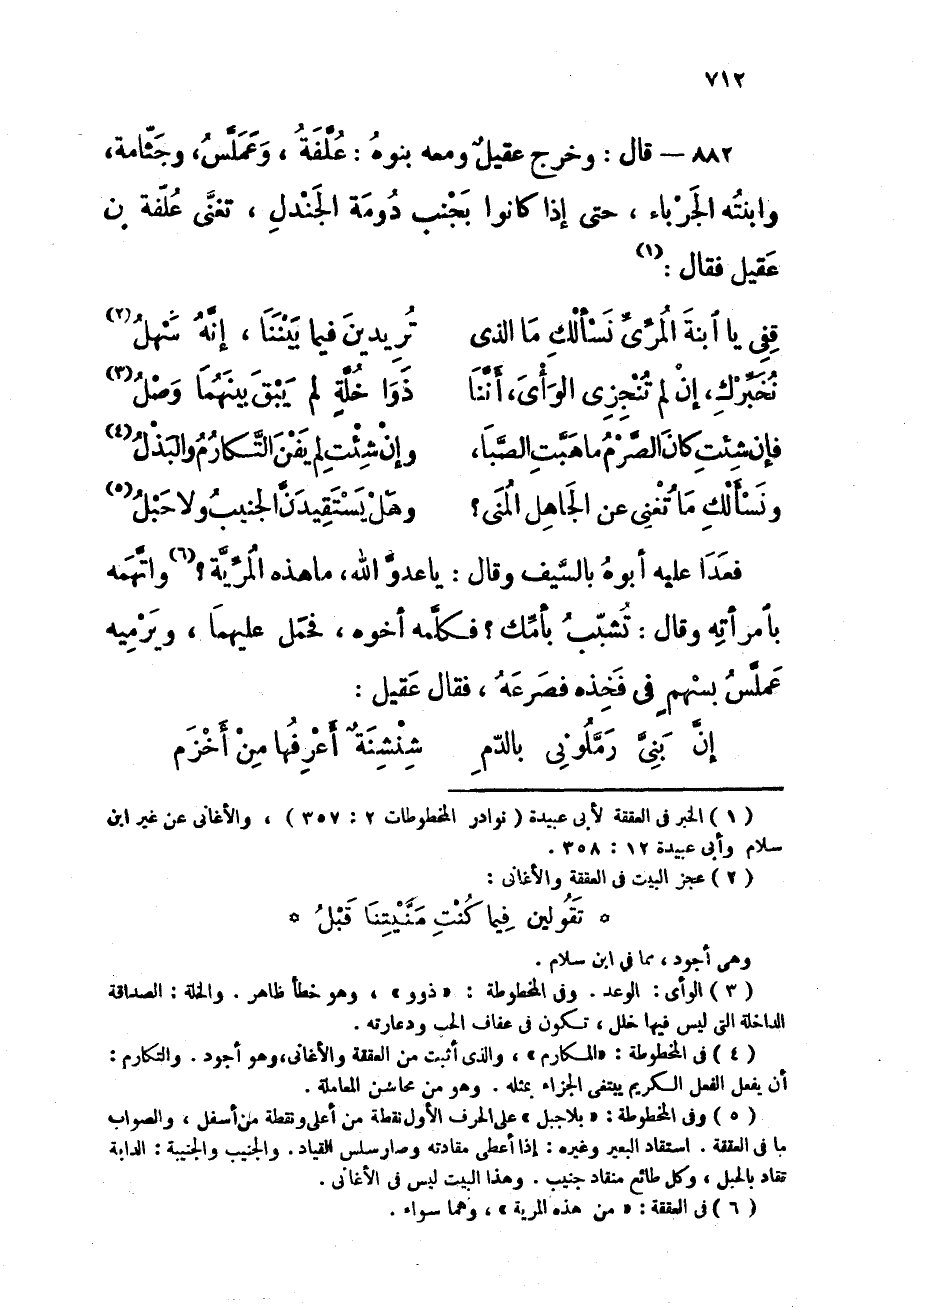 ٧١٢
٨٨٢ — قال : وخرج عقيلٌ ومعه بنوهُ : عُلَّفَةُ ، وَعَمَلَّسُ، وجَثّامة،
وابنتُه الجَرْباء ، حتى إذا كانوا بجَنْبِ دُومَة الجَندلِ ، تغنَّى عُلّفة بن
عَقيل فقال :(١)
قِفِي يا ٱبنةَ المُرّىِّ نَسأَلْكِ مَا الذى تُرِيدينَ فيما بَيْنَنَا ، إنَّهُ سَهْلُ(٢)
نُخَبِّرْكِ، إنْ لم تُنْجِزِى الوَأْىَ، أَنَّنَا ذَوَا خُلَّةٍ لم يَبْقَ بينهُمَا وَصْلُ(٣)
فإن شِئْتِ كانَ الصَّرْمُ ما هَبَّتِ الصَّبَا، وإنْ شِئْتِ لم يَفْنَ التَّكارُمُ والبَذْلُ(٤)
ونَسأَلْكِ مَا تُغْنِى عن الجَاهِلِ المُنَى؟ وهَلْ يَسْتَقِيدَنَّ الجنيبُ ولا حَبْلُ(٥)
فعَدَا عليه أبوهُ بالسَّيف وقال : ياعدوَّ الله، ماهذه المُرّيَّة؟(٦) واتَّهمَه
بٱمرأتِه وقال : تُشبِّبُ بأمّك؟ فكلَّمه أخوه ، فحَمَل عليهمَا ، ويَرْمِيه
عَملَّسُ بسهمٍ فى فَخِذه فصَرعَهُ ، فقال عَقيل :
إنَّ بَنِىَّ رَمَّلُونِى بالدَّمِ شِنْشِنَةٌ أَعْرِفُها مِنْ أَخْزَمِ
( ١ ) الخبر فى العققة لأبى عبيدة ( نوادر المخطوطات ٢ : ٣٥٧ ) ، والأغانى عن غير ابن
سلام وأبى عبيدة ١٢ : ٣٥٨ .
( ٢ ) عجز البيت فى العققة والأغانى :
* تَقُولين فِيما كُنْتِ مَنَّيْتِنَا قَبْلُ *
وهى أجود ، مما فى ابن سلام .
( ٣ ) الوأى : الوعد . وفى المخطوطة : « ذوو » ، وهو خطأ ظاهر . والخلة : الصداقة
الداخلة التى ليس فيها خلل ، تكون فى عفاف الحب ودعارته .
( ٤ ) فى المخطوطة : «المكارم» ، والذى أثبت من العققة والأغانى،وهو أجود . والتكارم :
أن يفعل الفعل الكريم يبتغى الجزاء بمثله . وهو من محاسن المعاملة .
( ٥ ) وفى المخطوطة : « بلاجبل » على الحرف الأول نقطة من أعلى ونقطة من أسفل ، والصواب
ما فى العققة . استقاد البعير وغيره : إذا أعطى مقادته وصار سلس القياد . والجنيب والجنيبة : الدابة
تقاد بالحبل ، وكل طائع منقاد جنيب . وهذا البيت ليس فى الأغانى .
( ٦ ) فى العققة : « من هذه المرية » ، وهما سواء .